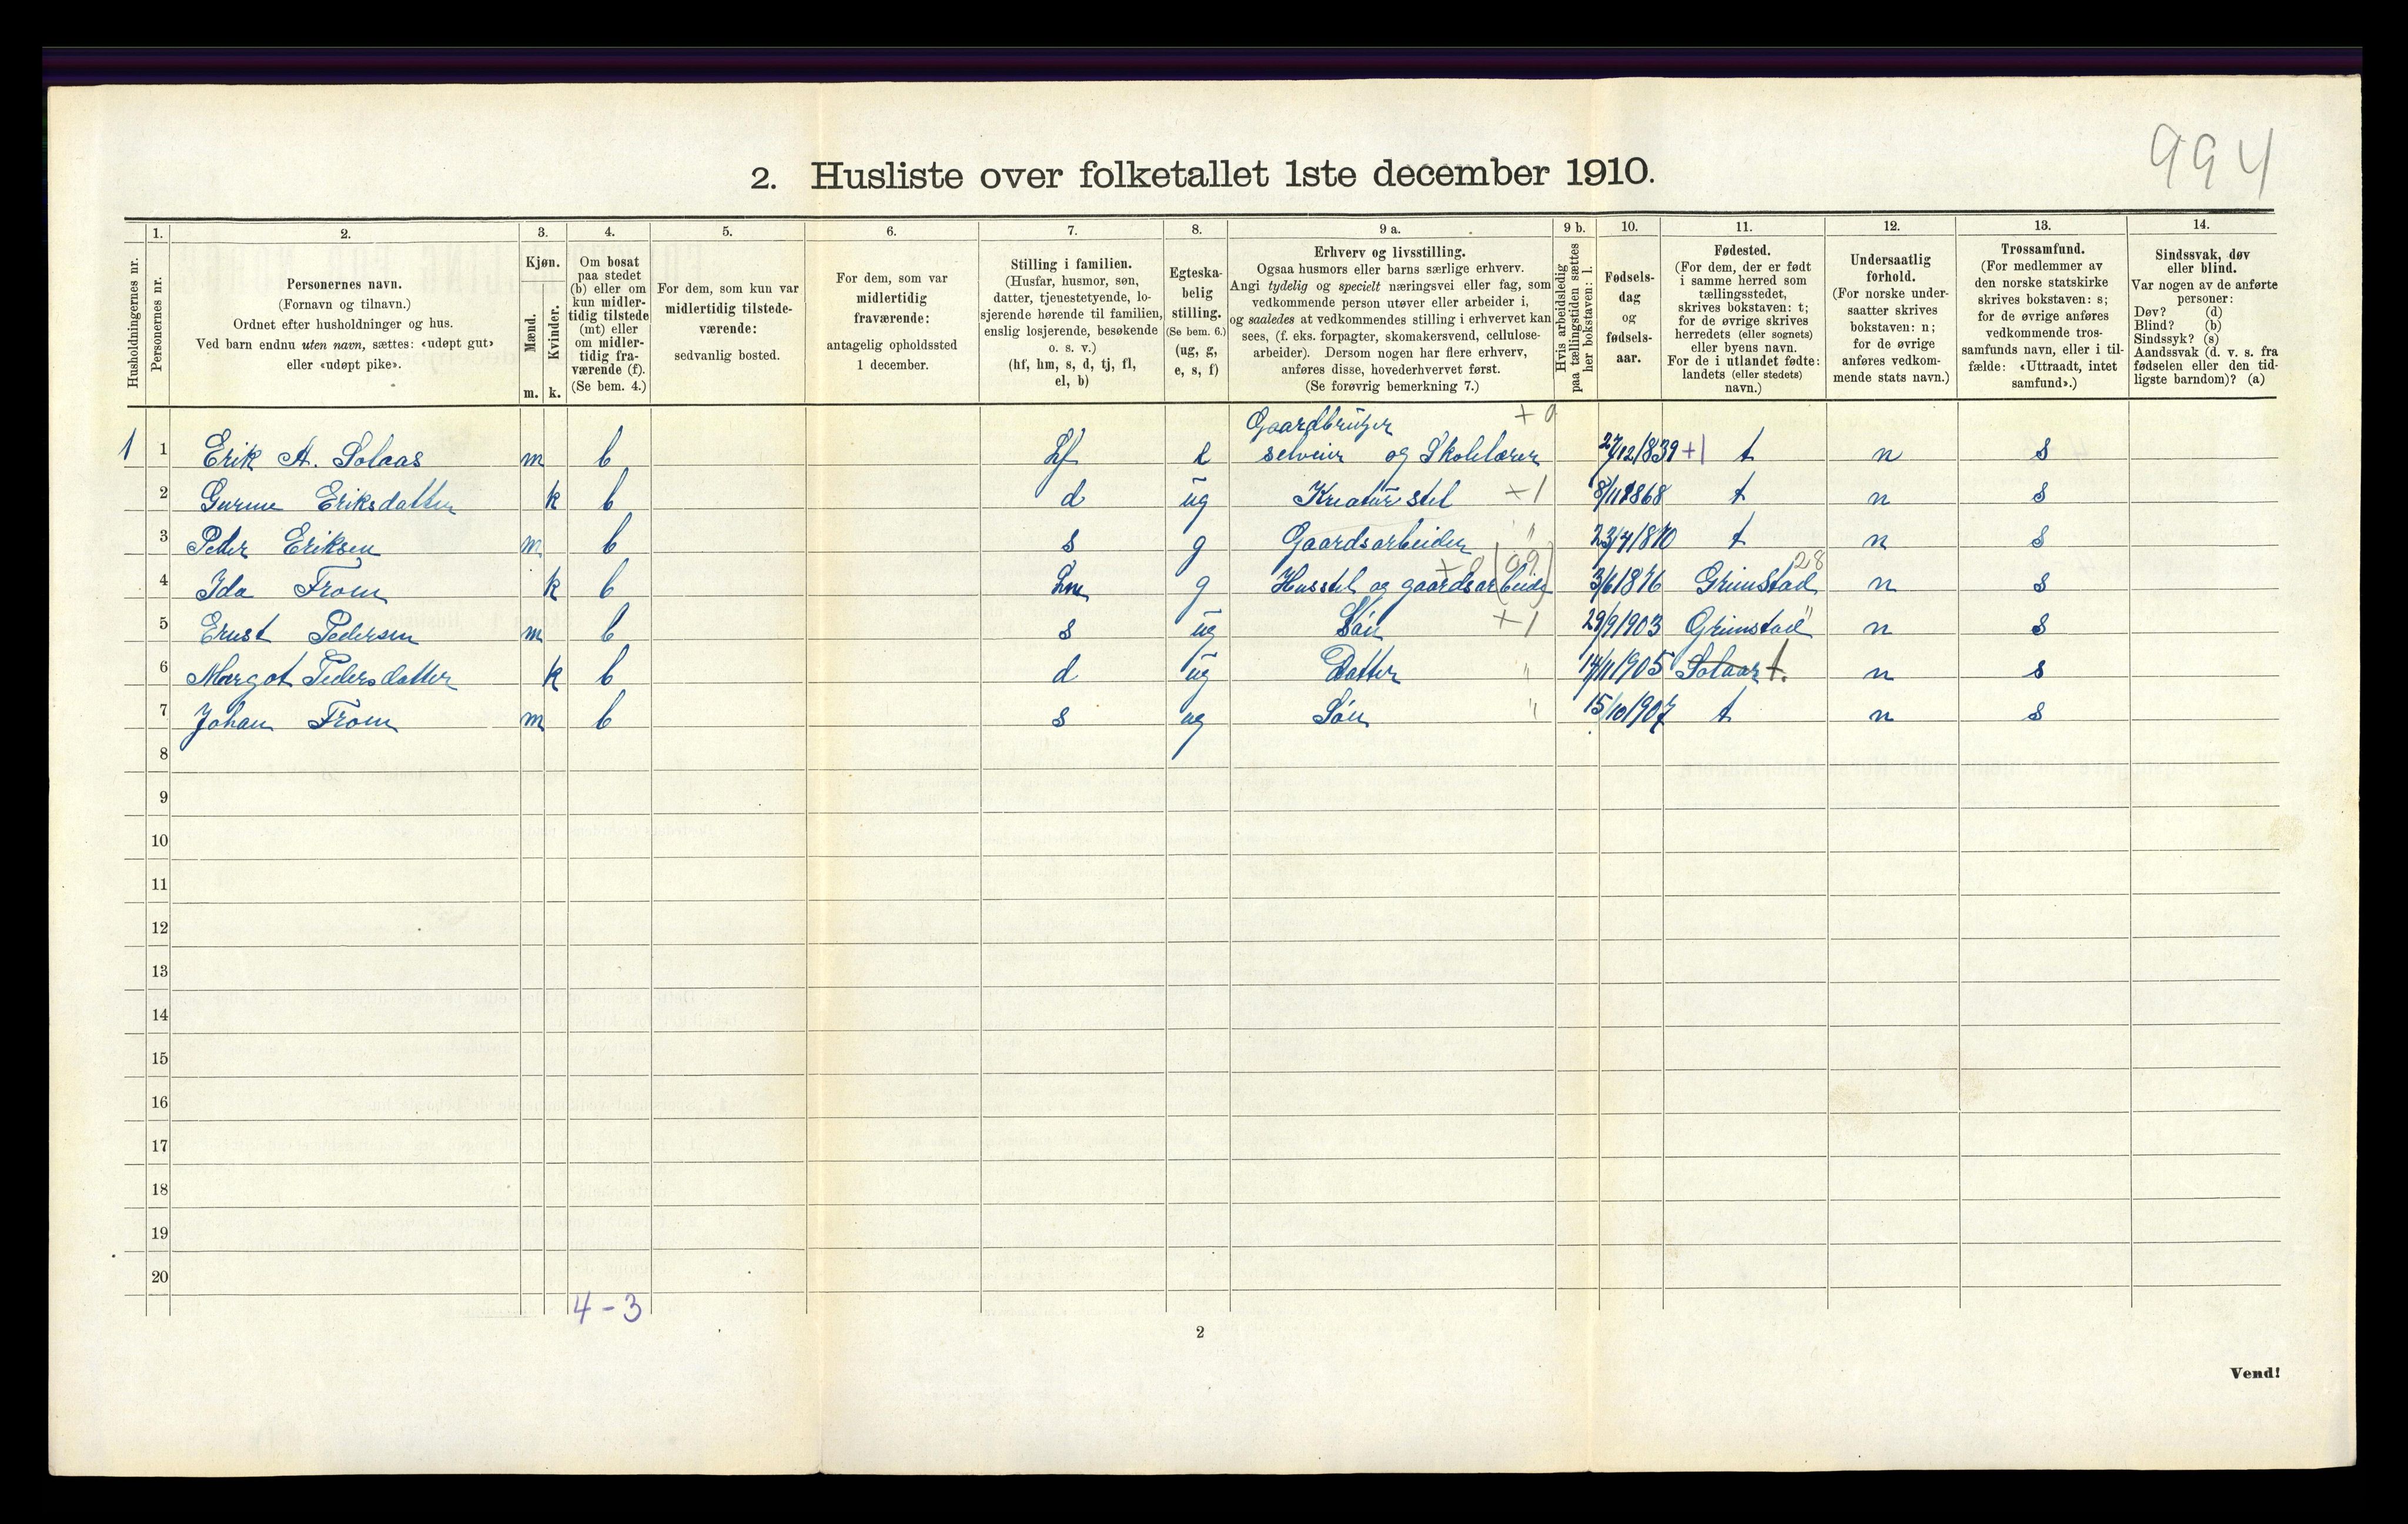 994
2. Husliste over folketallet 1ste december 1910.
Husholdningernes nr.
1.
Personernes nr.
2.
Personernes navn.
(Fornavn og tilnavn.)
Ordnet efter husholdninger og hus.
Ved barn endnu uten navn, sættes: «udøpt gut»
eller «udøpt pike».
3.
Kjøn.
Mænd.
Kvinder.
m. k.
4.
Om bosat
paa stedet
(b) eller om
kun midler-
tidig tilstede
(mt) eller
om midler-
tidig fra-
værende (f).
(Se bem. 4.)
5.
For dem, som kun var
midlertidig tilstede-
værende:
sedvanlig bosted.
6.
For dem, som var
midlertidig
fraværende:
antagelig opholdssted
1 december.
7.
Stilling i familien.
(Husfar, husmor, søn,
datter, tjenestetyende, lo-
sjerende hørende til familien,
enslig losjerende, besøkende
o. s. v.)
(hf, hm, s, d, tj, fl,
el, b)
8.
Egteska-
belig
stilling.
(Se bem. 6.)
(ug, g,
e, s, f)
9 a.
Erhverv og livsstilling.
Ogsaa husmors eller barns særlige erhverv.
Angi tydelig og specielt næringsvei eller fag, som
vedkommende person utøver eller arbeider i,
og saaledes at vedkommendes stilling i erhvervet kan
sees, (f. eks. forpagter, skomakersvend, cellulose-
arbeider). Dersom nogen har flere erhverv,
anføres disse, hovederhvervet først.
(Se forøvrig bemerkning 7.)
9 b.
Hvis arbeidsledig
paa tællingstiden sættes
her bokstaven: l.
10.
Fødsels-
dag
og
fødsels-
aar.
11.
Fødested.
(For dem, der er født
i samme herred som
tællingsstedet,
skrives bokstaven: t;
for de øvrige skrives
herredets (eller sognets)
eller byens navn.
For de i utlandet fødte:
landets (eller stedets)
navn.)
12.
Undersaatlig
forhold.
(For norske under-
saatter skrives
bokstaven: n;
for de øvrige
anføres vedkom-
mende stats navn.)
13.
Trossamfund.
(For medlemmer av
den norske statskirke
skrives bokstaven: s;
for de øvrige anføres
vedkommende tros-
samfunds navn, eller i til-
fælde: «Uttraadt, intet
samfund».)
14.
Sindssvak, døv
eller blind.
Var nogen av de anførte
personer:
Døv? (d)
Blind? (b)
Sindssyk? (s)
Aandssvak (d. v. s. fra
fødselen eller den tid-
ligste barndom)? (a)
Gaardbruger + 0
1 1 Erik A. Solaas m b hf e selveier og Skolelærer 27/12 1839 +1 t n s
2 Gurine Eriksdatter k b d ug Kreaturstel +1 8/11 1868 t n s
3 Peder Eriksen m b s g Gaardsarbeider " 23/7 1870 t n s
4 Ida From k b hm g Husstel og gaardsarbeide (09) 3/6 1876 Grimstad 28 n s
5 Ernst Pedersen m b s ug Søn +1 29/9 1903 Grimstad " n s
6 Margot Pedersdatter k b d ug Datter " 14/11 1905 Solaas t. n s
7 Johan From m b s ug Søn " 15/10 1907 t n s
8
9
10
11
12
13
14
15
16
17
18
19
20
4 - 3
2
Vend!